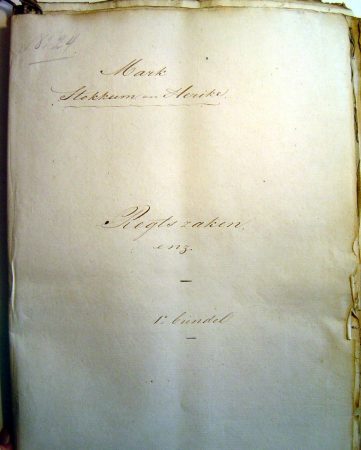 Mark
Stokkum en Herike.
Regtszaken
enz.
1e bundel